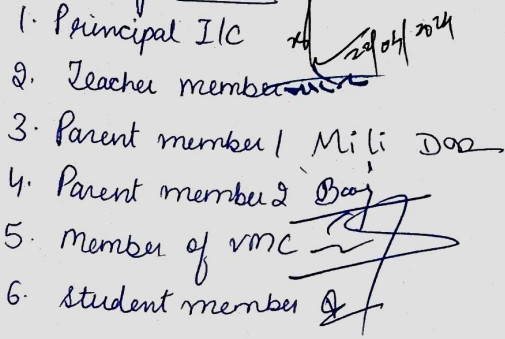 1. Principal I/C 29/04/2024
2. Teacher member
3. Parent member 1 Mili Das
4. Parent member 2
5. Member of VMC
6. Student member